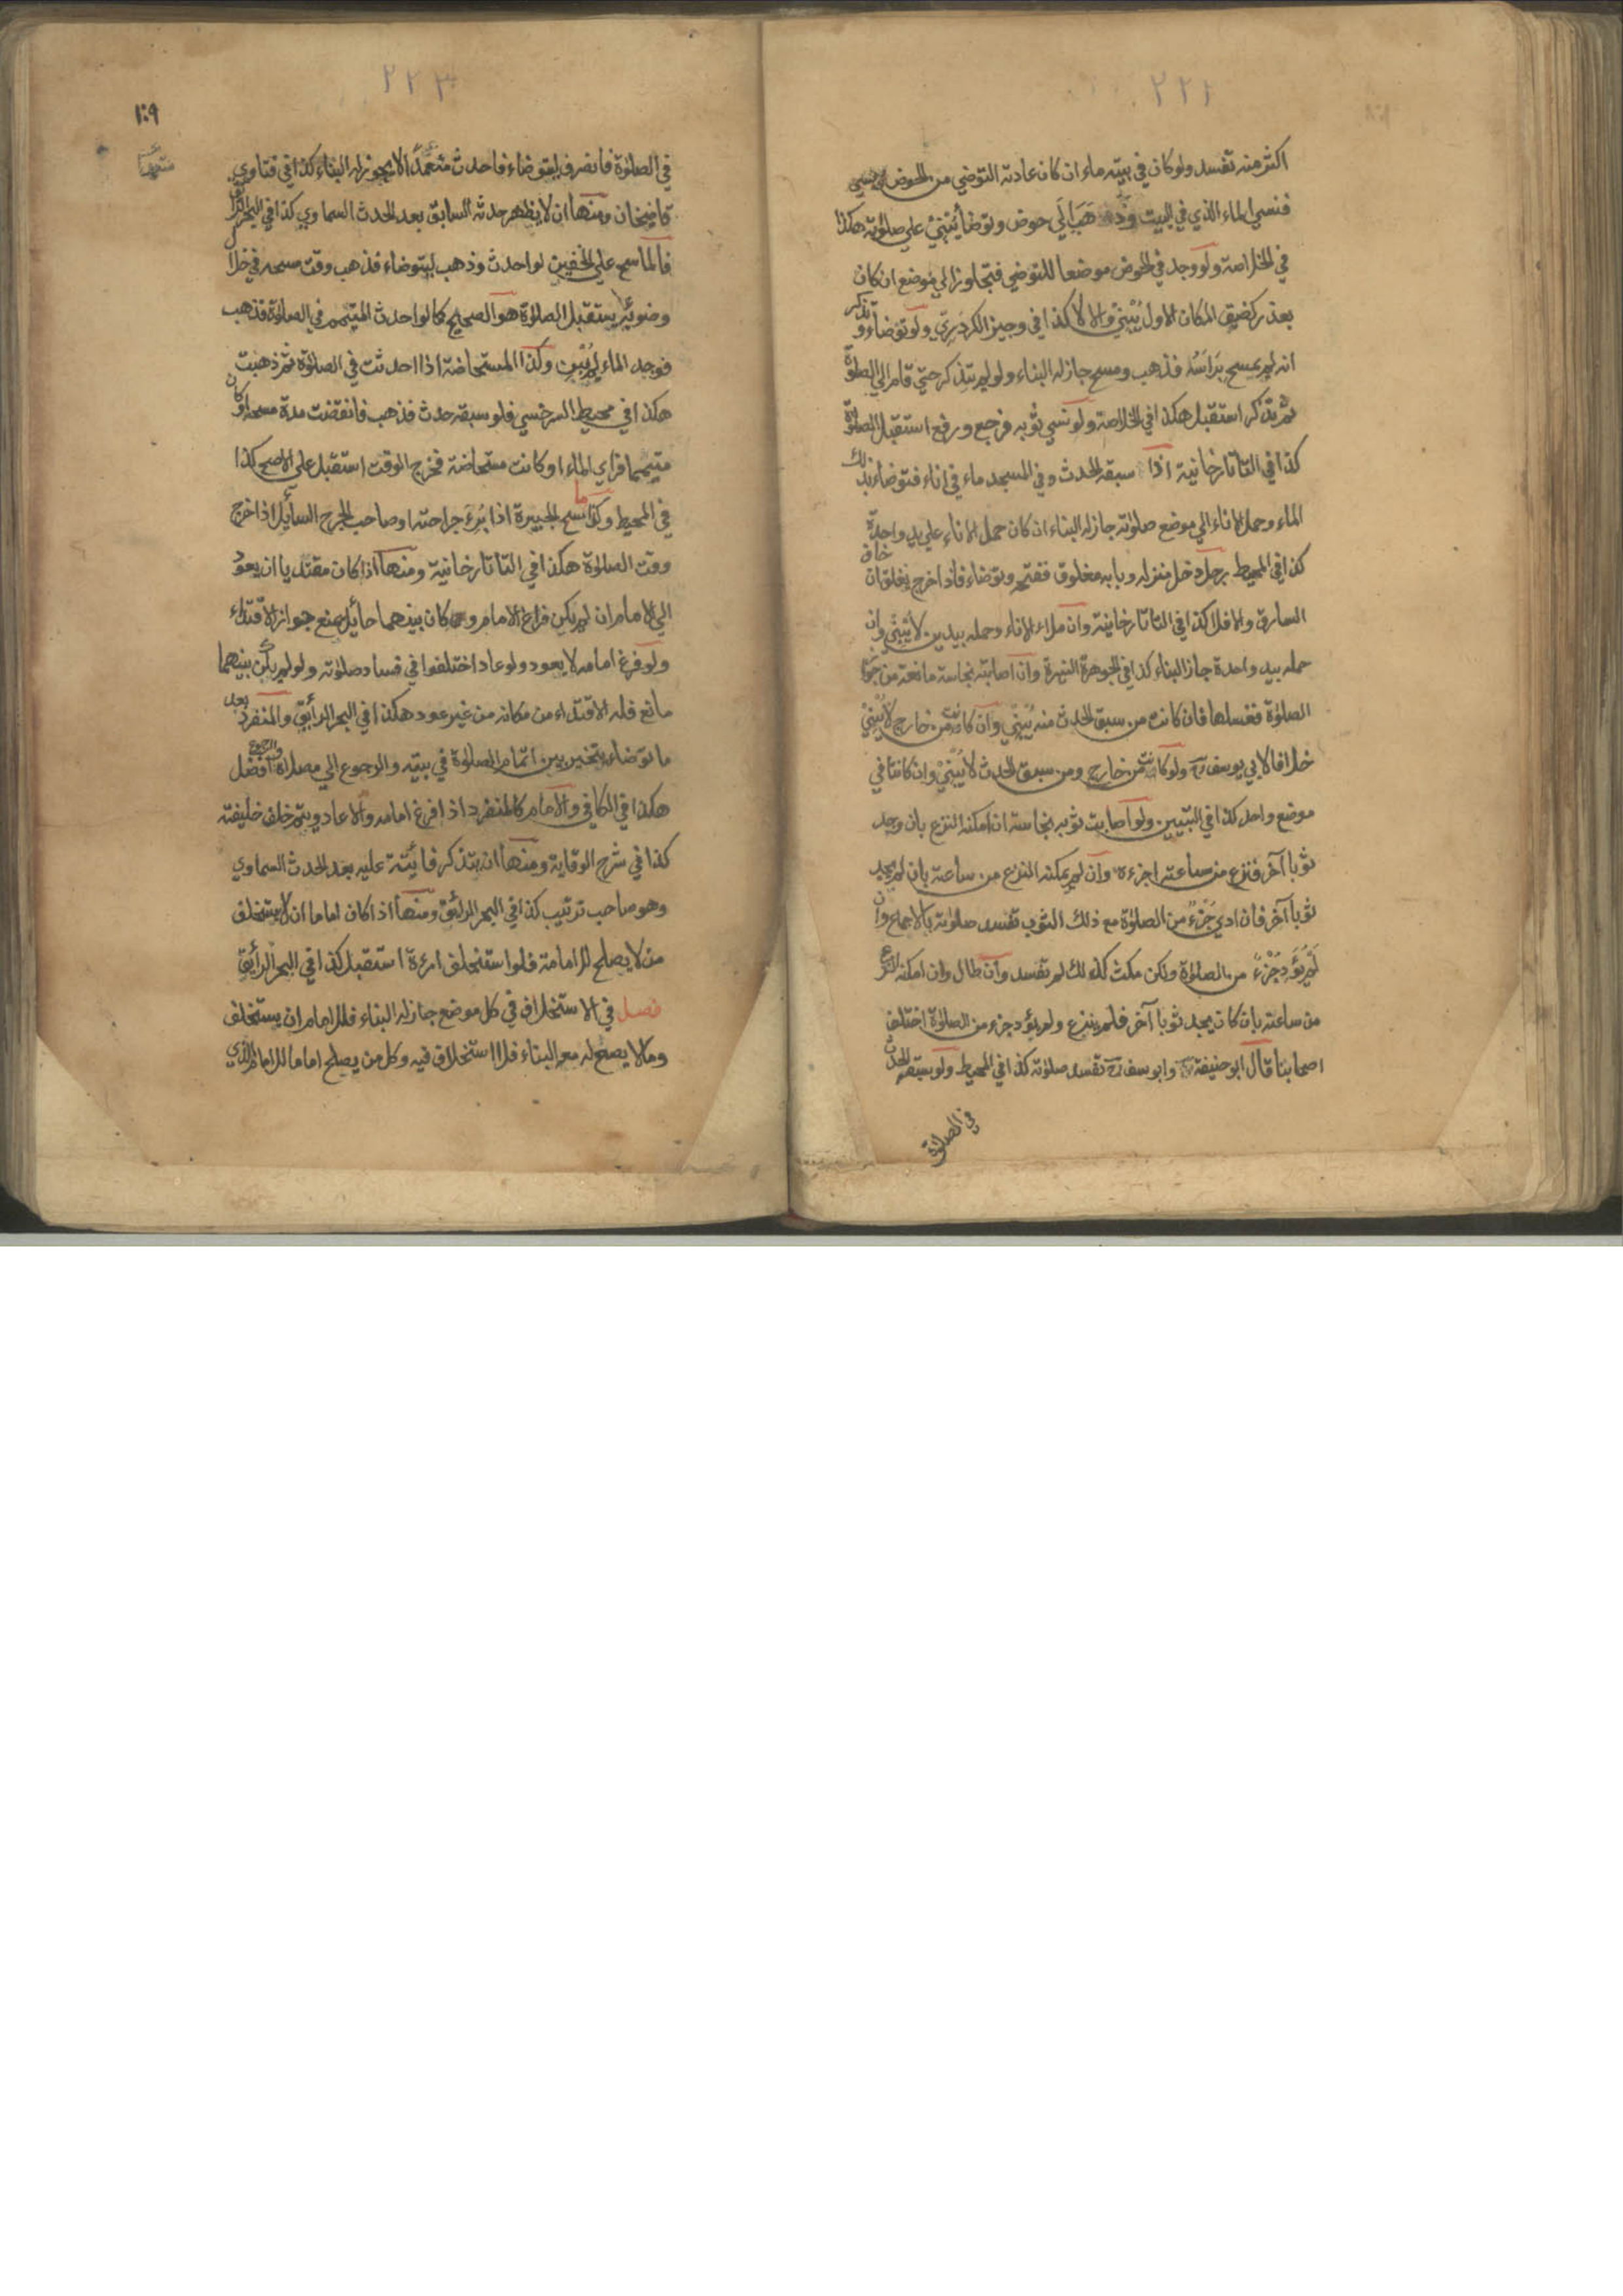 ٢٢٢
اكثر منه تفسد ولو كان في بيته ماء ان كان عادته التوضي من الحوض
فنسي الماء الذي في البيت وذهب الي حوض وتوضأ يبني علي صلوته هكذا
في الخلاصة ولو وجد في الحوض موضعا للتوضي فتجاوز الي موضع ان كان
بعذر كضيق المكان الاول يبني والا لا كذا في وجيز الكردري ولو توضاء وتذكر
انه لم يمسح براسه فذهب ومسح جاز له البناء ولو لم يتذكر حتي قام الي الصلوة
ثم تذكر استقبل هكذا في الخلاصة ولو نسي ثوبه فرجع ورفع استقبل الصلوة
كذا في التاتارخانية اذا سبقه الحدث وفي المسجد ماء في اناء فتوضاء بذلك
الماء وحمل الاناء الي موضع صلوته جاز له البناء ان كان حمل الاناء علي يد واحدة
كذا في المحيط رجل دخل منزله وبابه مغلوق ففتحه وتوضاء فاذا خرج يغلق ان خاف
السارق والا فلا كذا في التاتارخانية وان ملاء الاناء وحمله بيدين لا يبني وان
حمله بيد واحدة جاز البناء كذا في الجوهرة النيرة وان اصابته نجاسة مانعة من جواز
الصلوة فغسلها فان كانت من سبق الحدث منه يبني وان كانت من خارج لا يبني
خلافا لابي يوسف رح ولو كانت من خارج ومن سبق الحدث لا يبني وان كانتا في
موضع واحد كذا في التبيين ولو اصابت ثوبه نجاسة ان امكنه النزع بان وجد
ثوبا آخر فنزع من ساعته اجزءه وان لم يمكنه النزع من ساعته بان لم يجد
ثوبا آخر فان ادي جزء من الصلوة مع ذلك الثوب تفسد صلوته بالاجماع وان
لم يؤد جزء من الصلوة ولكن مكث كذلك لم تفسد وان طال وان امكنه النزع
من ساعته بان كان يجد ثوبا آخر فلم ينزع ولم يؤد جزء من الصلوة اختلف
اصحابنا قال ابو حنيفة رح وابو يسف رح تفسد صلوته كذا في المحيط ولو سبقه الحدث
في الصلوة
٢٢٣
١٠٩
في الصلوة فانصرف ليتوضاء فاحدث متعمدا لا يجوز له البناء كذا في فتاوي
قاضيخان ومنها ان لا يظهر حدثه السابق بعد الحدث السماوي كذا في البحر الرائق
فالماسح علي الخفين لو احدث وذهب ليتوضاء فذهب وقت مسحه في خلال
وضوئه يستقبل الصلوة هو الصحيح كما لو احدث المتيمم في الصلوة فذهب
فوجد الماء لم يبن وكذا المستحاضة اذا احدثت في الصلوة ثم ذهبت
هكذا في محيط السرخسي فلو سبقه حدث فذهب فانقضت مدة مسحه او كان
متيمما فراي الماء او كانت مستحاضة فخرج الوقت استقبل علي الاصح كذا
في المحيط وكذا ماسح الجبيرة اذا برئ جراحته او صاحب الجرح السائل اذا خرج
وقت الصلوة هكذا في التاتارخانية ومنها اذا كان مقتديا ان يعود
الي الامام ان لم يكن فراغ الامام و كان بينهما حائل يمنع جواز الاقتداء
ولو فرغ امامه لا يعود ولو عاد اختلفوا في فساد صلوته ولو لم يكن بينهما
مانع فله الاقتداء من مكانه من غير عود هكذا في البحر الرائق والمنفرد بعد
ما توضاء يتخير بين اتمام الصلوة في بيته والرجوع الي مصلاه والرجوع افضل
هكذا في الكافي والامام كالمنفرد اذا فرغ امامه والا عاد ويتم خلف خليفته
كذا في شرح الوقاية ومنها ان يتذكر فائتة عليه بعد الحدث السماوي
وهو صاحب ترتيب كذا في البحر الرائق ومنها اذا كان اماما ان لا يستخلف
من لا يصلح للامامة فلو استخلف امرءة استقبل كذا في البحر الرائق
فصل في الاستخلاف في كل موضع جاز له البناء فللامام ان يستخلف
وما لا يصح له معه البناء فلا استخلاف فيه وكل من يصلح اماما للامام الذي